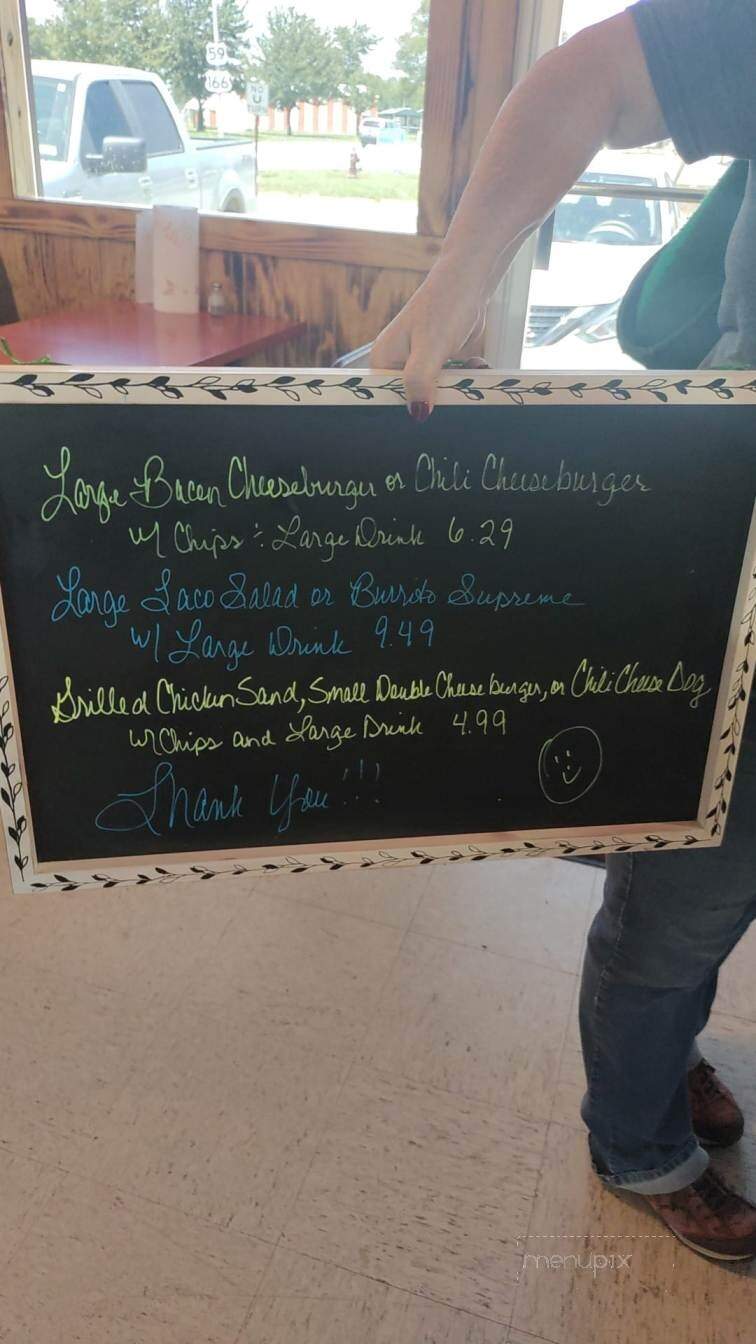 59
166
NO
U
TURN
Large Bacon Cheeseburger or Chili Cheeseburger
w/ Chips & Large Drink 6.29
Large Taco Salad or Burrito Supreme
w/ Large Drink 9.49
Grilled Chicken Sand, Small Double Cheeseburger, or Chili Cheese Dog
w/ Chips and Large Drink 4.99
Thank You!!!
menupix